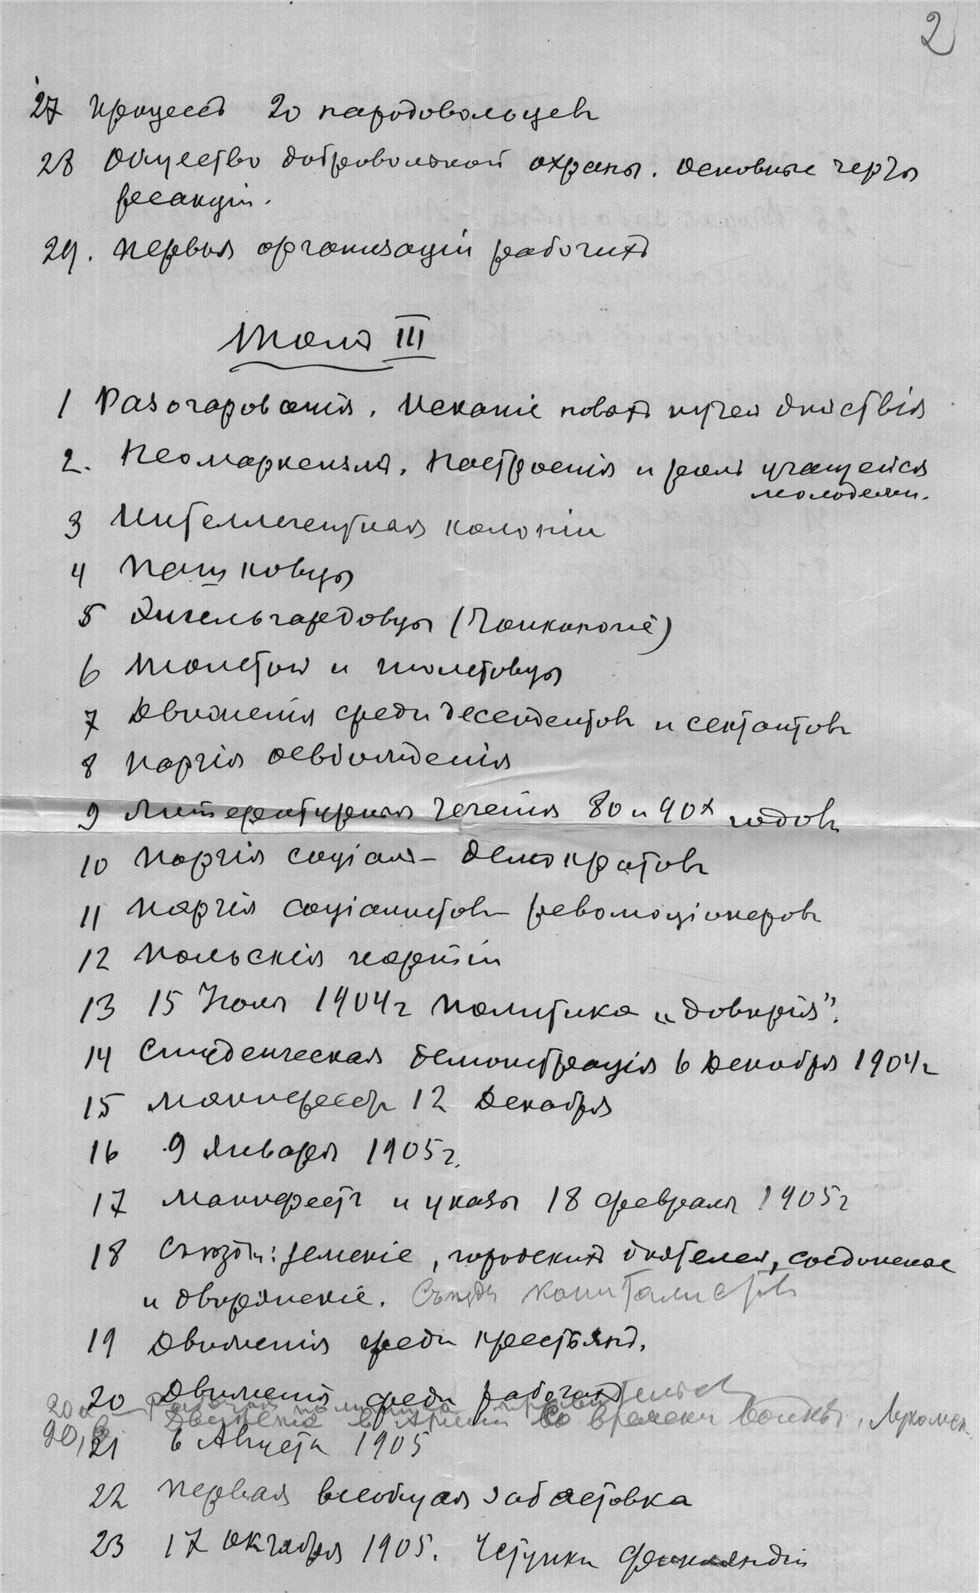 2
27 Процессъ 20 народовольцевъ
28 Общество добровольной охраны. Основные черты
реакціи.
29. Первыя организаціи рабочихъ
Томъ III
1 Разочарованія. Исканіе новыхъ путей дѣйствія
2. Неомарксизмъ. Настроенія и роль учащейся
молодежи.
3 Интеллигентная колоніи
4 Пашковцы
5 Энгельгардовцы
6 Толстой и толстовцы
7 Движенія среди десендентовъ и сектантовъ
8 Партія освобожденія
9 Литературныя теченія 80 и 90х годовъ
10 Партія соціалъ-демократовъ
11 Партія соціалистовъ-революціонеровъ
12 Польскія партіи
13 15 Іюля 1904 г Политика „довѣрія".
14 Студенческая демонстрація 6 Декабря 1904 г
15 Манифестъ 12 Декабря
16 9 Января 1905 г.
17 Манифестъ и указы 18 февраля 1905 г
18 Съѣзды: земскіе, городскихъ дѣятелей, соединеные
и дворянскіе. Съѣзды капиталистовъ
19 Движенія среди крестьянъ.
20 Движенія среди рабочихъ
20а Рабочая политика правительства
20,б Движеніе в арміи во времени войны,
21 6 Августа 1905
22 Первая всеобщая забастовка
23 17 октября 1905. Уступки Финляндіи